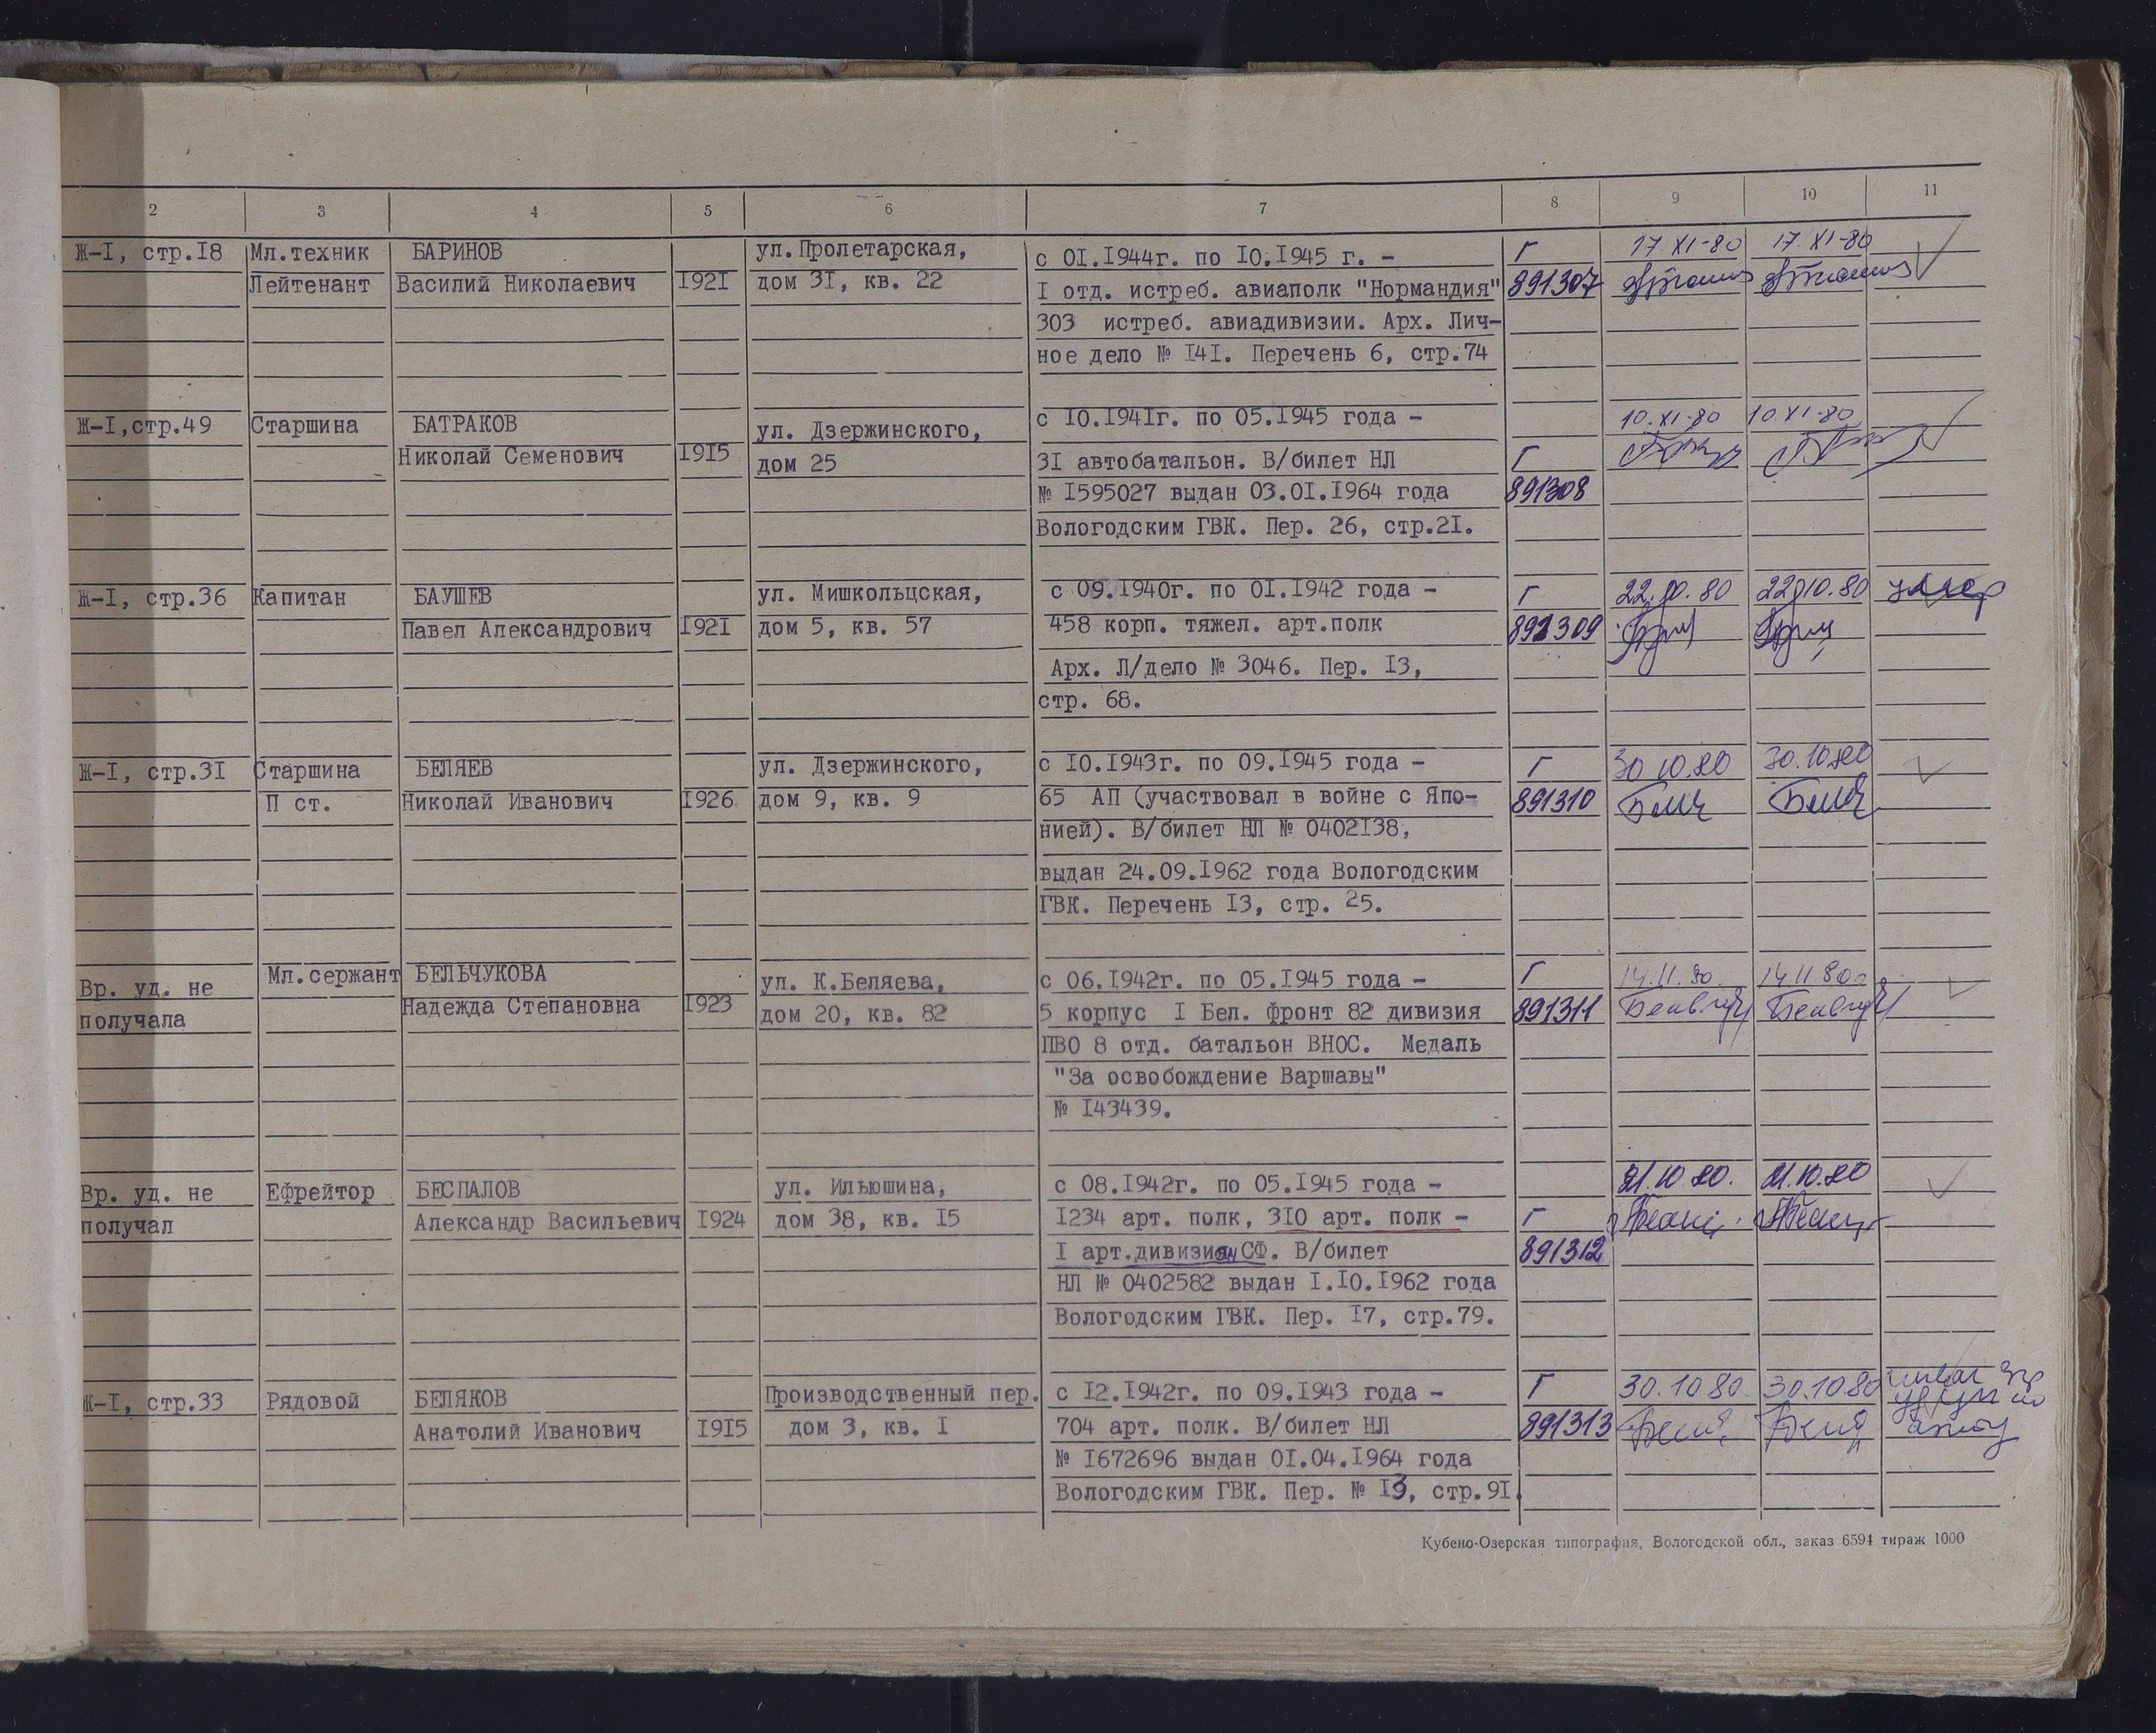 2 3 4 5 6 7 8 9 10 11
Ж-I, стр.I8 Мл.техник БАРИНОВ ул.Пролетарская, с 0I.I944г. по I0.I945 г. - Г 17.XI-80 17.XI-80
Лейтенант Василий Николаевич I92I дом 3I, кв. 22 I отд. истреб. авиаполк "Нормандия" 891307
303 истреб. авиадивизии. Арх. Лич-
ное дело № I4I. Перечень 6, стр.74
Ж-I,стр.49 Старшина БАТРАКОВ ул. Дзержинского, с I0.I94Iг. по 05.I945 года - 10.XI-80 10 XI-80
Николай Семенович I9I5 дом 25 3I автобатальон. В/билет НЛ Г
№ I595027 выдан 03.0I.I964 года 891308
Вологодским ГВК. Пер. 26, стр.2I.
Ж-I, стр.36 Капитан БАУШЕВ ул. Мишкольцская, с 09.I940г. по 0I.I942 года - Г 22.10.80 22.10.80 умер
Павел Александрович I92I дом 5, кв. 57 458 корп. тяжел. арт.полк 891309
Арх. Л/дело № 3046. Пер. I3,
стр. 68.
Ж-I, стр.3I Старшина БЕЛЯЕВ ул. Дзержинского, с I0.I943г. по 09.I945 года - Г 30 10.80 30.10.80
П ст. Николай Иванович I926 дом 9, кв. 9 65 АП (участвовал в войне с Япо- 891310
нией). В/билет НЛ № 0402I38,
выдан 24.09.I962 года Вологодским
ГВК. Перечень I3, стр. 25.
Вр. уд. не Мл.сержант БЕЛЬЧУКОВА ул. К.Беляева, с 06.I942г. по 05.I945 года - Г 14.11.80. 14 11 80
получала Надежда Степановна I923 дом 20, кв. 82 5 корпус I Бел. фронт 82 дивизия 891311
ПВО 8 отд. батальон ВНОС. Медаль
"За освобождение Варшавы"
№ I43439.
Вр. уд. не Ефрейтор БЕСПАЛОВ ул. Ильюшина, с 08.I942г. по 05.I945 года - 21.10 80. 21.10.80
получал Александр Васильевич I924 дом 38, кв. I5 I234 арт. полк, 3I0 арт. полк - Г
I арт.дивизион СФ. В/билет 891312
НЛ № 0402582 выдан I.I0.I962 года
Вологодским ГВК. Пер. I7, стр.79.
Ж-I, стр.33 Рядовой БЕЛЯКОВ Производственный пер. с I2.I942г. по 09.I943 года - Г 30.10 80. 30.10.80
Анатолий Иванович I9I5 дом 3, кв. I 704 арт. полк. В/билет НЛ 891313
№ I672696 выдан 0I.04.I964 года
Вологодским ГВК. Пер. № I3, стр.9I.
Кубено-Озерская типография, Вологодской обл., заказ 6594 тираж 1000